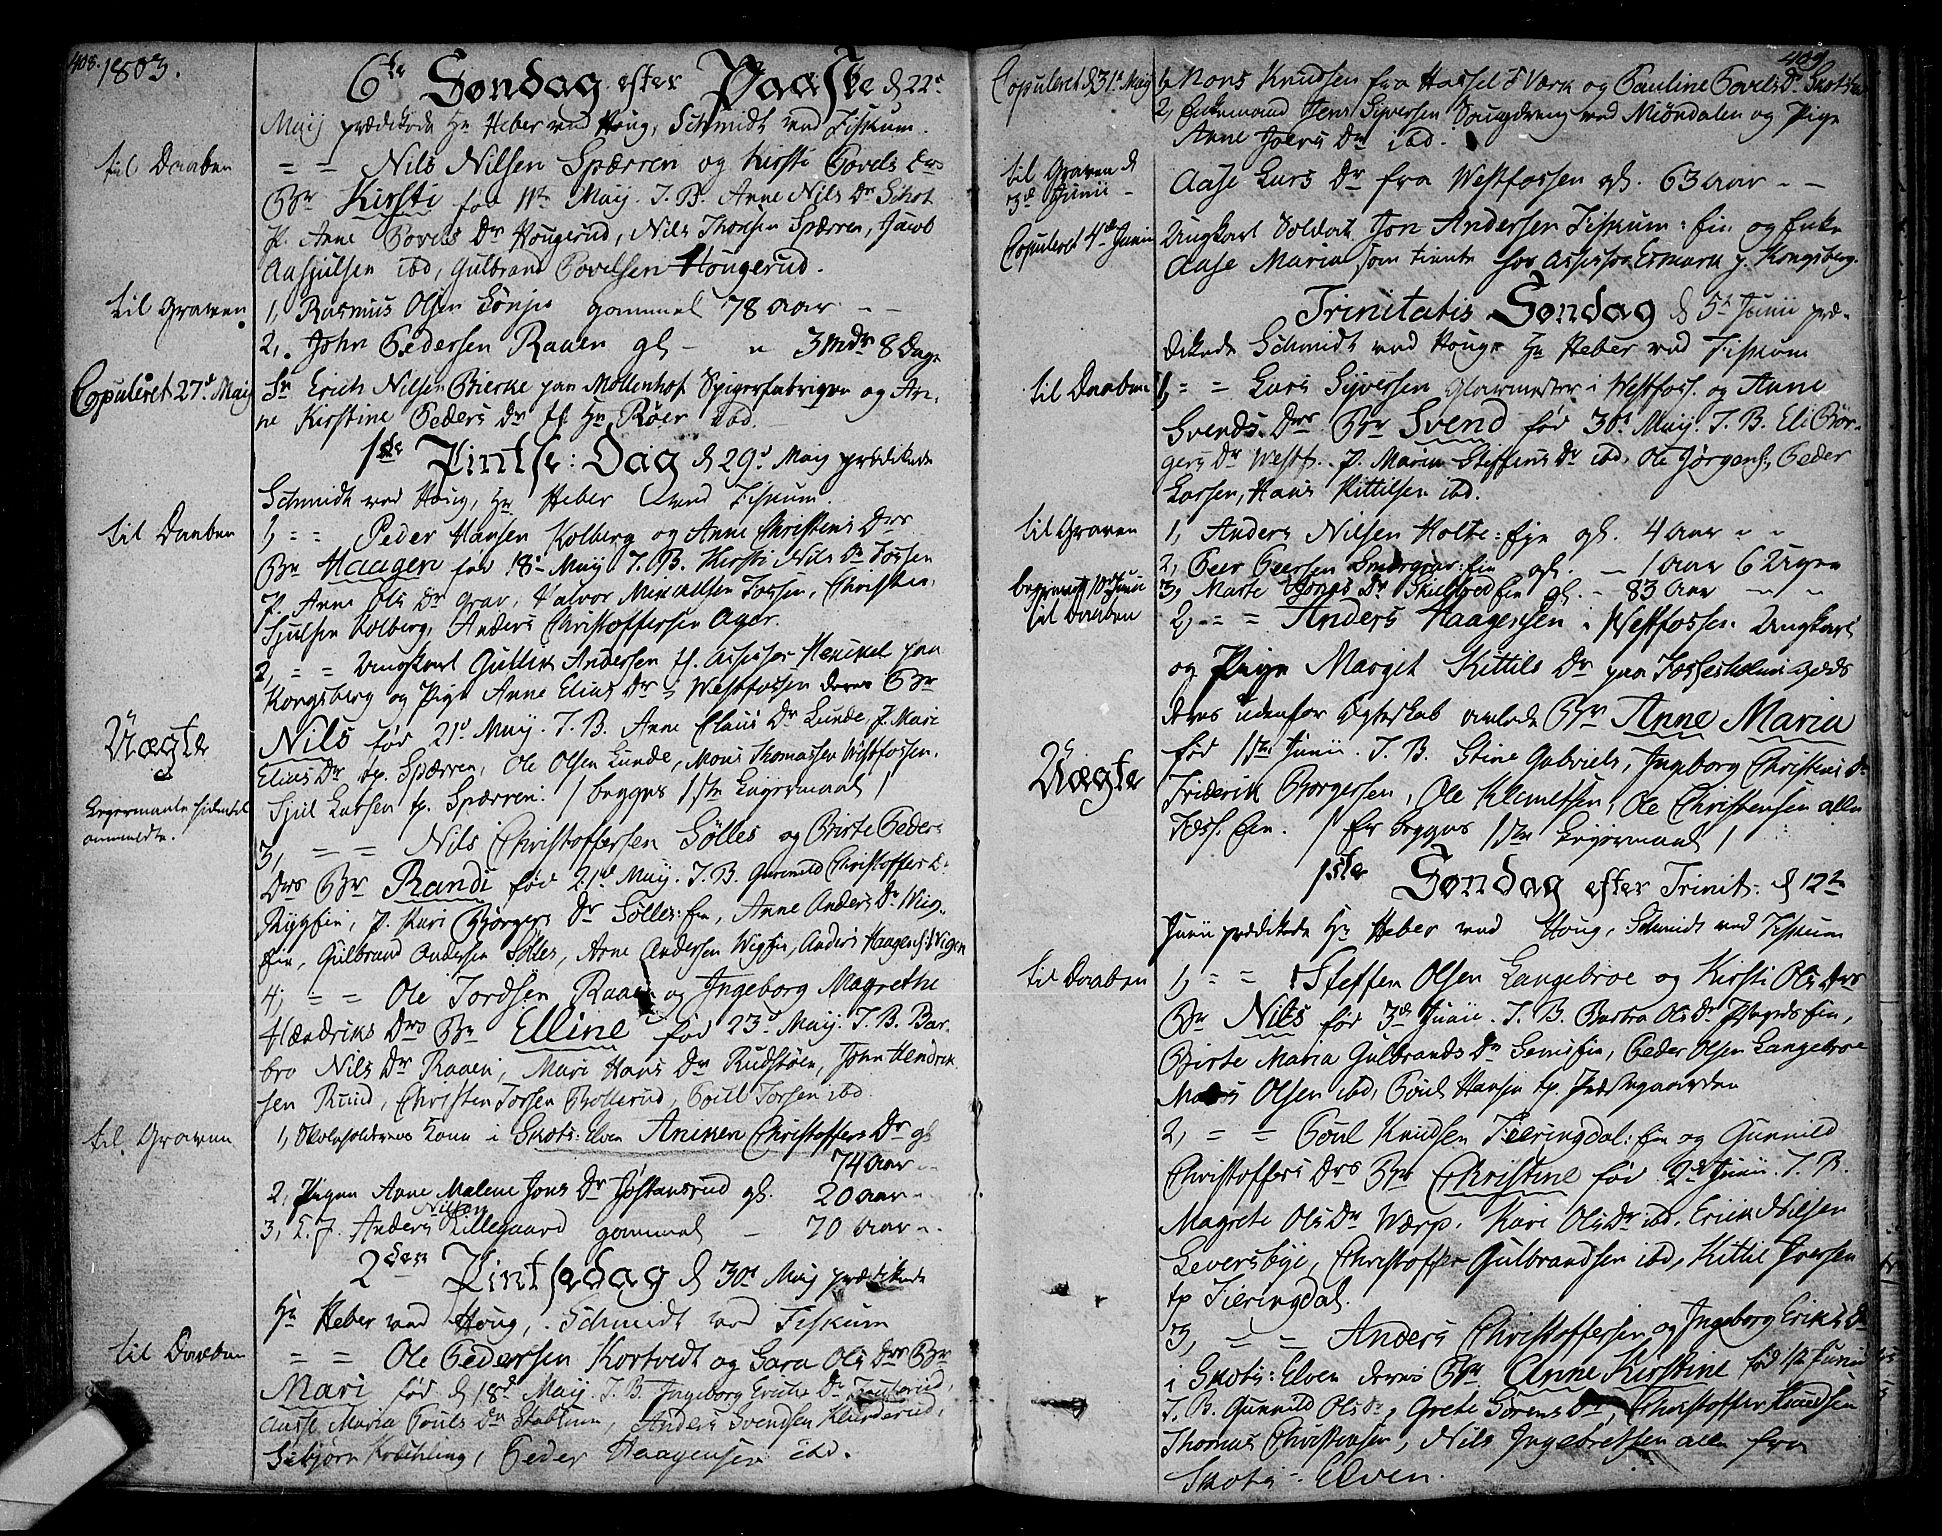 408. 1803.
6te Søndag efter Paaske d 22de
Maij prædikede Hr Heber ved Houg, Schmidt ved Fiskum.
til Daaben
= = Nils Nilsen Spærren og Kirsti Povels Drs
Br Kirsti før 11te Maij. T. B. Anne Nils Dr Schot
P. Anne Povels Dr Hougerud, Nils Thorsen Spærren, Jacob
Aasjulsen ibd, Gulbrand Povelsen Hougerud.
til Graven
1, Rasmus Olsen gammel 78 aar - -
2, John Pedersen Raaen gl - " 3 Mdr 8 Dage
Copuleret 27de Maij
Sr Erich Nilsen Bierke paa Mollenhof Spigerfabriqen og An-
ne Kirstine Peders Dr tf Hr Røer ibd.
1ste Pintse: Dag d 29de Maij prædikede
Schmidt ved Houg, Hr Heber ved Fiskum.
til Daaben
1, = = Peder Hansen Kolberg og Anne Christens Drs
Br Haagen før 18de Maij T. B. Kirsti Nils Dr Fossen
P. Anne Ols Dr Grav, Halvor Fossen, Christen
Sjulsen Kolberg, Anders Christoffersen Ager.
2, = = Ungkarl Gullik Andersen tf. Assessor Henckel paa
Kongsberg og Pige Anne Elius Dr i Westfossen deres Br
Uægte
Nils før 21de Maij. T. B. Anne Claus Dr Lunde, P. Mari
Elius Dr tp. Spærren, Ole Olsen Lunde, Mons Thomassen Westfossen,
Leyermaalet sidentil
anmeldte.
Sjul Larsen tp. Spærren: / begges 1ste Leyermaal /
3, = = Nils Christoffersen Sølles og Birte Peders
Drs Br Randi før 21de Maij. T. B. Gunnild Christoffers Dr
Rygfin, P. Kari Børgers Dr Sølles: Ein, Anne Anders Dr Wig-
Ein, Gulbrand Andersen Sølles, Arne Andersen Wigfin, Anders Haagens: Wigen
4, = = Ole Tordsen Raaen og Ingeborg Magrethe
Hændriks Drs Br Elline før 23de Maij. T. B. Bar-
bro Nils Dr Raaen, Mari Hans Dr Rudstøen, John Hendrik-
sen Ruud, Christen Torsen Bollerud, Poul Torsen ibd.
til Graven
1, Kone i Skots: Elven Anniken Christoffers Dr gl
74 aar -
2, Pigen Anne Malene Jons Dr Jøstansrud gl. 20 aar -
3, L. J. Anders Nilsen Lillegaard gammel - 70 aar -
2den Pintsedag d 30te Maij prædikede
Hr Heber ved Houg, Schmidt ved Fiskum
til Daaben
= = Ole Pedersen Kortvedt og Sara Ols Drs Br
Mari før d 18de Maij. T. B. Ingeborg Erichs Dr
Aase Maria Pouls Dr Stablum, Anders Svendsen Klunderud,
Sebjørn Krækling, Peder Haagensen ibd.
409.
Copuleret d 31te Maij
1, Mons Knudsen fra Hassel d Værk og Pauline Povels Dr Skotselv
2, Enkemand Jens Syversen Saugdreng ved Miøndalen og Pige
Anne Joens Dr ibd.
til Graven d
3de Junii -
Aase Lars Dr fra Westfossen gl. 63 aar - -
Copuleret 4de Junii
Ungkarl Soldat Jon Andersen Fiskum: Ein og Enke
Aase Maria som tiente hos Assessor Ermark p. Kongsberg.
Trinitatis Søndag d 5te Junii præ-
dikede Schmidt ved Houg, Hr Heber ved Fiskum
til Daaben
1, = = Lars Syversen Glarmester i Westfoss. og Anne
Svends Drs Br Svend før 30te Maij. T. B. Eli Bør-
gers Dr Westf. P. Maria Steffens Dr ibd, Ole Jørgens:, Peder
Larsen, Hans Kittilsen ibd.
til Graven
1, Anders Nilsen Holte: Eje gl. 4 aar - -
2, Peer Peersen Smørgrav: Ein gl. - 1 aar 6 Uger
begravet 10de Junii
3, Marte Jonas Dr Skilbred Ein gl. - 83 aar - -
til Daaben
2, = = Anders Haagensen i Westfossen Ungkarl
og Pige Margit Kittils Dr paa Fossesholms
deres udenfor Egteskab avlede Br Anne Maria
Uægte
før 1ste Junii. T. B. Stine Gabriels, Ingeborg Christens Dr
Friderik Børgersen, Ole Klemetsen, Ole Christensen alle
Foss. Ein. / Er begges 1ste Leyermaal /
1ste Søndag efter Trinit: d 12te
Junii prædikede Hr Heber ved Houg, Schmidt ved Fiskum
til Daaben
1, = = Steffen Olsen Langebroe og Kirsti Ols Drs
Br Nils før 3de Junii. T. B. Barbra Ols Dr
Birte Maria Gulbrands Dr Semsfin, Peder Olsen Langebroe
Olsen ibd, Poul Hansen tp. Præstegaarden
2, = = Poul Knudsen Fieringdal: Ein og Gunnild
Christoffers Drs Br Christine før 2de Junii. T. B.
Magrete Ols Dr Wærp, Kari Ols Dr ibd, Erik Nilsen
Leversbye, Christoffer Gulbrandsen ibd, Kittil Iversen
tp Fieringdal.
3, = = Anders Christoffersen og Ingeborg Eriks Dr
i Skots: Elven deres Br Anne Kirstine før 1ste Junii
T. B. Gunnild Ols Dr, Grete Sørens Dr, Christoffer Knudsen
Thomas Christensen, Nils Ingebretsen alle fra
Skots: Elven.